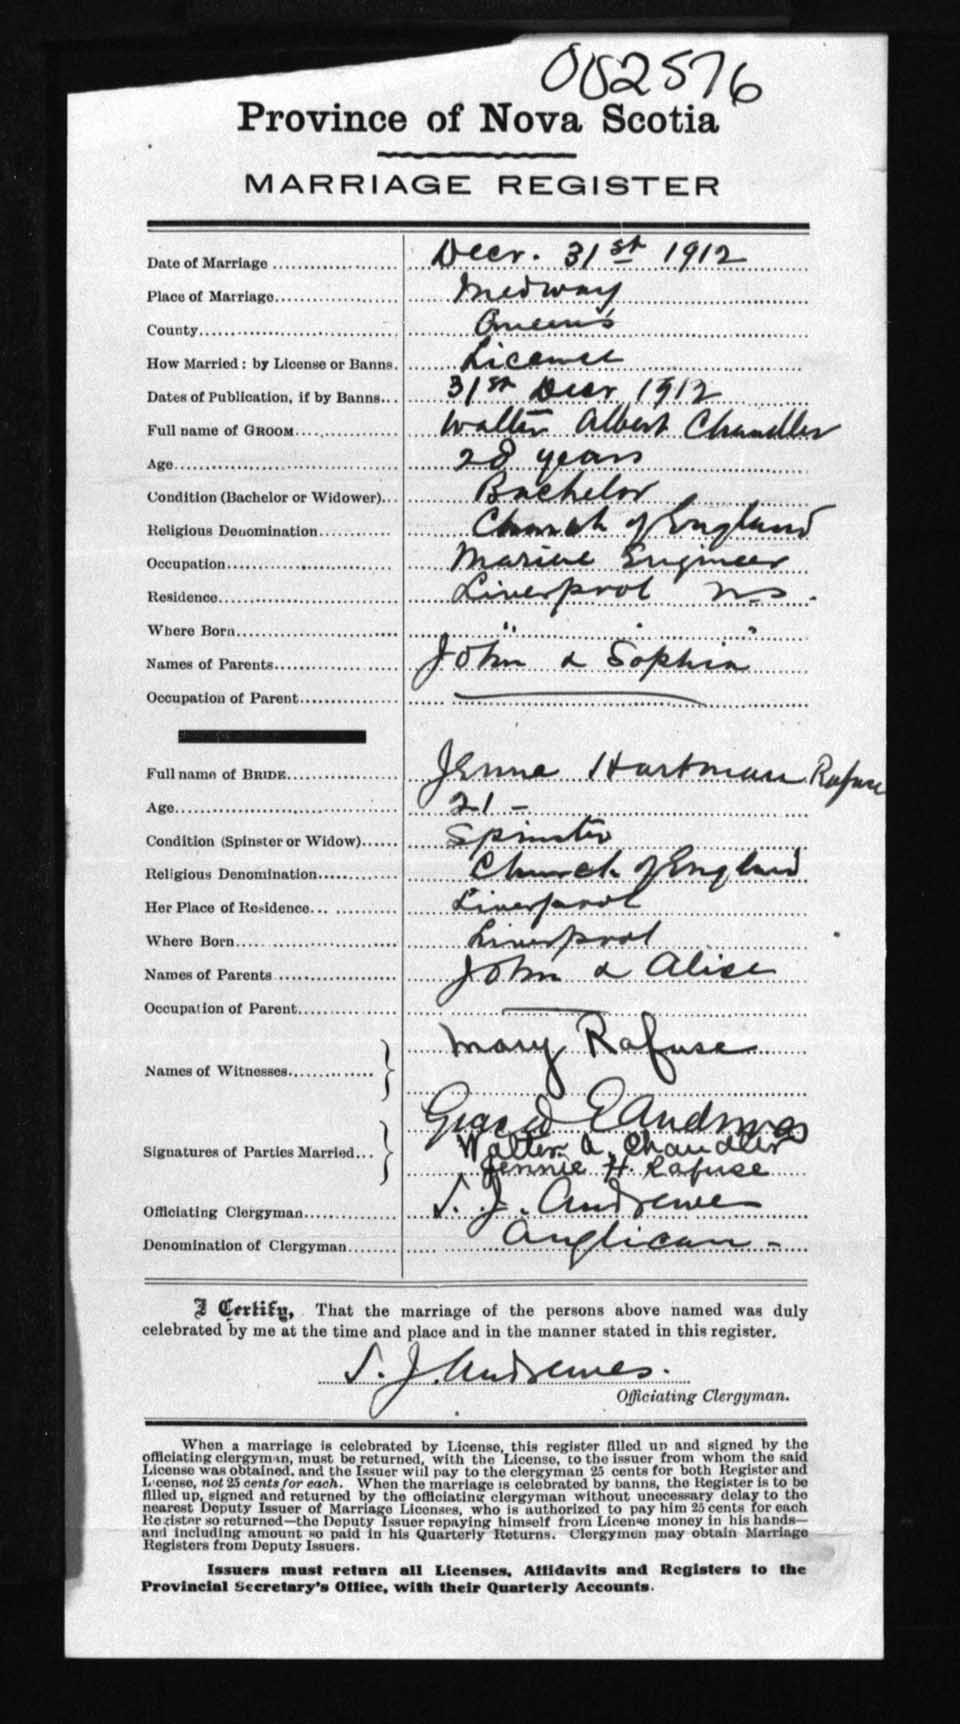 002576
Province of Nova Scotia
MARRIAGE REGISTER
Date of Marriage Decr. 31st 1912
Place of Marriage Medway
County Queens
How Married: by License or Banns. License
Dates of Publication, if by Banns 31st Decr 1912
Full name of GROOM Walter Albert Chandler
Age 28 years
Condition (Bachelor or Widower) Bachelor
Religious Denomination Church of England
Occupation Marine Engineer
Residence Liverpool N.S.
Where Born " " "
Names of Parents John & Sophia
Occupation of Parent
Full name of BRIDE Jennie Hartman Rafuse
Age 21 -
Condition (Spinster or Widow) Spinster
Religious Denomination Church of England
Her Place of Residence Liverpool
Where Born Liverpool
Names of Parents John & Alise
Occupation of Parent
Names of Witnesses Mary Rafuse
E Andrewes
Signatures of Parties Married Walter A. Chandler
Jennie H. Rafuse
Officiating Clergyman S. J. Andrewes
Denomination of Clergyman Anglican -
I Certify, That the marriage of the persons above named was duly
celebrated by me at the time and place and in the manner stated in this register.
S. J. Andrewes.
Officiating Clergyman.
When a marriage is celebrated by License, this register filled up and signed by the
officiating clergyman, must be returned, with the License, to the issuer from whom the said
License was obtained, and the Issuer will pay to the clergyman 25 cents for both Register and
License, not 25 cents for each. When the marriage is celebrated by banns, the Register is to be
filled up, signed and returned by the officiating clergyman without unnecessary delay to the
nearest Deputy Issuer of Marriage Licenses, who is authorized to pay him 25 cents for each
Register so returned—the Deputy Issuer repaying himself from License money in his hands—
and including amount so paid in his Quarterly Returns. Clergymen may obtain Marriage
Registers from Deputy Issuers.
Issuers must return all Licenses, Affidavits and Registers to the
Provincial Secretary's Office, with their Quarterly Accounts.